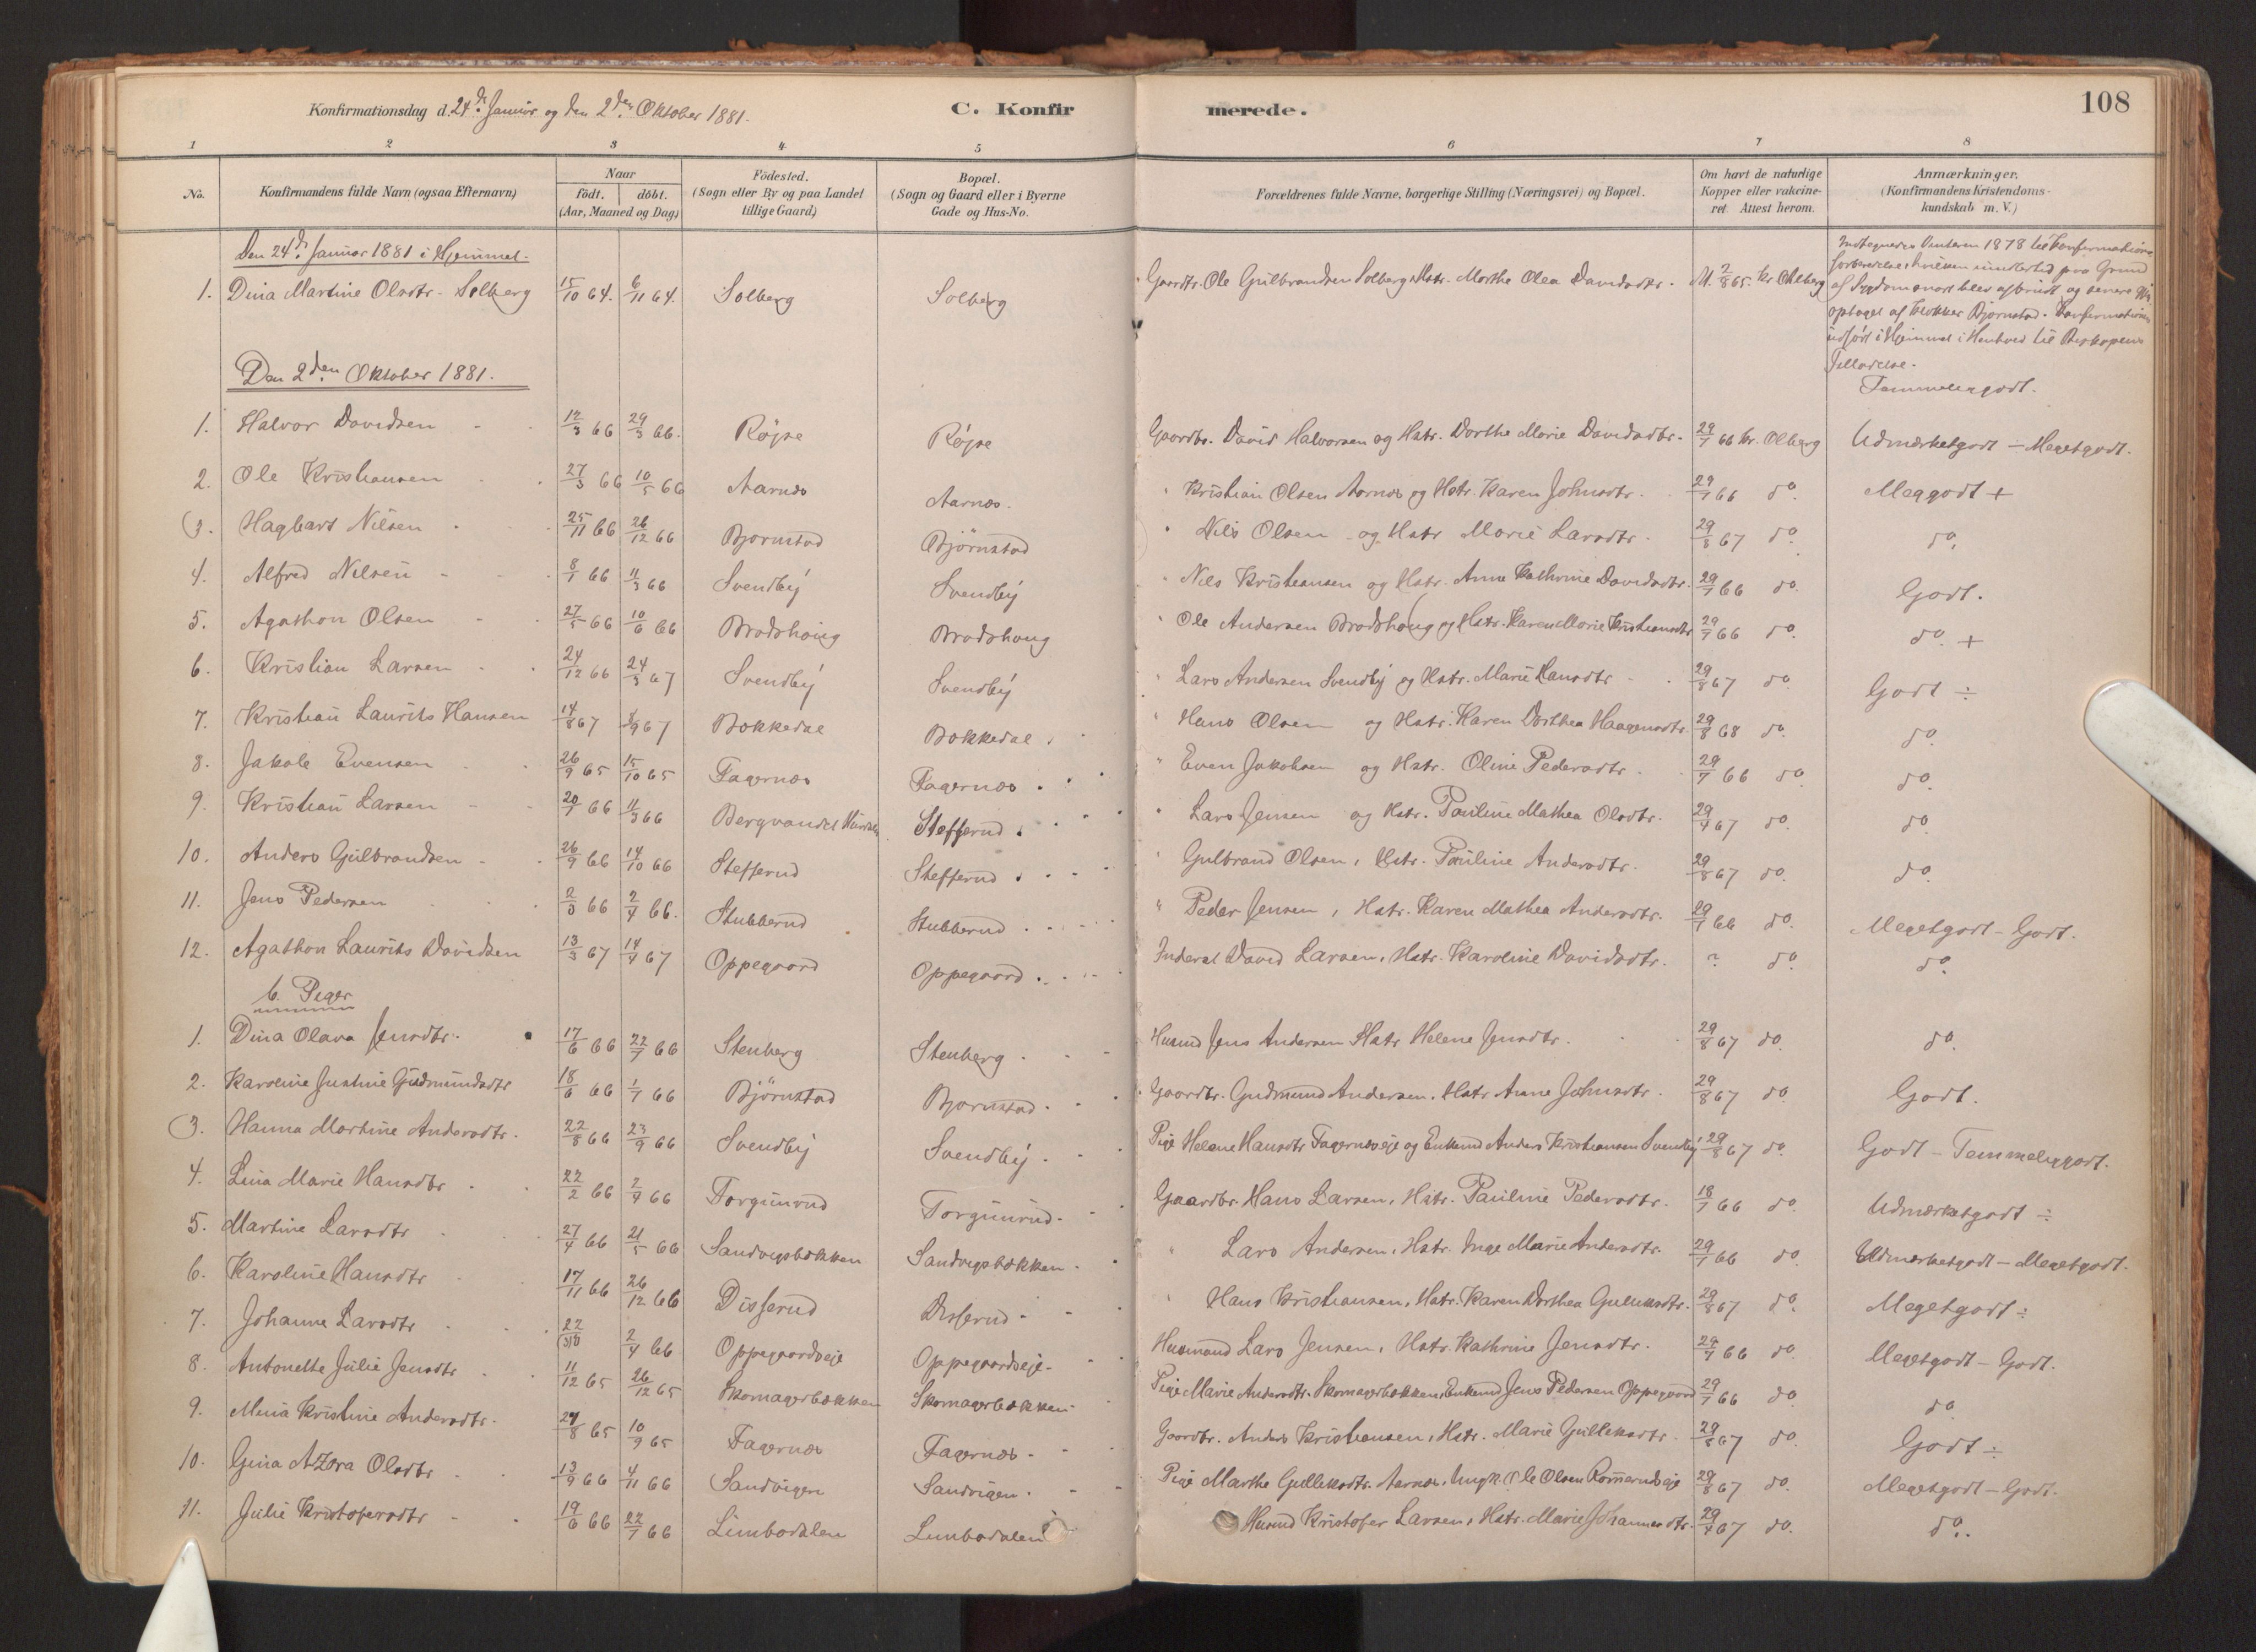 Konfirmationsdag d. 24de Januar og den 2den Oktober 1881.
C. Konfirmerede.
108
1 2 3 4 5 6 7 8
No. Konfirmandens fulde Navn (ogsaa Efternavn) Naar födt. döbt. (Aar, Maaned og Dag) Födested. (Sogn eller By og paa Landet tillige Gaard) Bopæl. (Sogn og Gaard eller i Byerne Gade og Hus-No. Forældrenes fulde Navne, borgerlige Stilling (Næringsvei) og Bopæl. Om havt de naturlige Kopper eller vakcineret. Attest herom. Anmærkninger. (Konfirmandens Kristendomskundskab m. V.)
Den 24de Januar 1881 i Hjemmet.
1. Dina Martine Olsdtr. Solberg 15/10 64. 6/11 64. Solberg Solberg Gaardbr. Ole Gulbrandsen Solberg Hstr. Marthe Olea Davidsdtr. 2/8 65. kr. Olberg
af Sygdom snart blev afbrudt og senere
optaget af Kirkesanger Bjørnstad. Konfirmationen
udført i Hjemmet i Henhold til Biskopens
Tilladelse.
Temmeliggodt.
Den 2den Oktober 1881.
1. Halvor Davidsen 12/3 66 29/3 66. Røjse Røjse Gaardbr. David Halvorsen og Hstr. Dorthe Marie Davidsdtr. 29/7 66 kr. Olberg Udmærketgodt - Megetgodt.
2. Ole Kristiansen 27/3 66 10/5 66 Aarnæs Aarnæs. " Kristian Olsen Aarnæs og Hstr. Karen Johnsdtr. 29/7 66 do. Meggodt +
3. Hagbart Nilsen 25/11 66 26/12 66 Bjørnstad Bjørnstad " Nils Olsen og Hstr Marie Larsdtr. 29/8 67 do. do.
4. Alfred Nilsen 8/1 66 11/3 66 Svendby Svendby " Nils Kristiansen og Hstr. Anne Kathrine Davidsdtr. 29/7 66 do. Godt.
5. Agathon Olsen 27/5 66 10/6 66 Bradshaug Bradshaug " Ole Andersen Bradshaug og Hstr. Karen Marie Kristiansdtr 29/7 66 do. do. +
6. Kristian Larsen 24/12 66 24/3 67 Svendby Svendby " Lars Andersen Svendby og Hstr. Marie Hansdtr 29/8 67 do. Godt ÷
7. Kristian Laurits Hansen 14/8 67 8/9 67 Bokkedal Bokkedal " Hans Olsen og Hstr. Karen Dorthea Haagensdtr 29/8 68 do. do.
8. Jakob Evensen 26/9 65 15/10 65 Fagernæs Fagernæs " Even Jakobsen og Hstr. Oline Pedersdtr. 29/7 66 do. do.
9. Kristian Larsen 20/1 66 11/3 66 Bergvandet Hurdalen Stefferud " Lars Jensen og Hstr. Pauline Mathea Olsdtr. 29/4 67 do. do.
10. Anders Gulbrandsen 26/9 66 14/10 66 Stefferud Stefferud " Gulbrand Olsen, Hstr. Pauline Andersdtr. 29/8 67 do. do.
11. Jens Pedersen 2/3 66 2/4 66. Stubberud Stubberud " Peder Jensen, Hstr. Karen Mathea Andersdtr. 29/7 66 do. Megetgodt - Godt.
12. Agathon Laurits Davidsen 13/3 67 14/4 67 Oppegaard Oppegaard Inderst David Larsen, Hstr. Karoline Davidsdtr. ? do. do.
b. Piger
1. Dina Olava Jensdtr. 17/6 66 22/7 66 Stenberg Stenberg Husmd Jens Andersen Hstr Helene Jensdtr. 29/8 67 do. do.
2. Karoline Justine Gudmundsdtr 18/6 66 1/7 66 Björnstad Bjørnstad Gaardbr. Gudmund Andersen, Hstr Anne Johnsdtr. 29/8 67 do. Godt.
3. Hanna Martine Andersdtr. 22/8 66 23/9 66 Svendby Svendby Pige Helene Hansdtr Fagernæseje og Enkemd Anders Kristiansen Svendby 29/8 67 do. Godt - Temmeliggodt.
4. Lina Marie Hansdtr 22/2 66 2/4 66 Torgunrud Torgunrud Gaardbr. Hans Larsen, Hstr. Pauline Pedersdtr. 18/7 66 do. Udmærketgodt ÷
5. Martine Larsdtr 27/4 66 21/5 66 Sandvigsbækken Sandvigsbækken " Lars Andersen, Hstr. Inge Marie Andersdtr. 29/7 66 do. Udmærketgodt - Megetgodt.
6. Karoline Hansdtr 17/11 66 26/12 66 Disserud Disserud " Hans Kristiansen, Hstr. Karen Dorthea Gulliksdtr. 29/8 67 do. Megetgodt ÷
7. Johanne Larsdtr 22 2/4 66 Oppegaardseje Oppegaardseje Husmand Lars Jensen, Hstr. Kathrine Jensdtr. 29/7 66 do. Megetgodt - Godt.
8. Antonette Julie Jensdtr 11/12 65 26/12 65 Skomagerbækken Skomagerbækken Pige Marie Andersdtr. Skomagerbækken, Enkemd Jens Pedersen Oppegaard 29/7 66 do. do.
9. Mina Kristine Andersdtr. 24/8 65 10/9 65 Fagernæs Fagernæs Gaardbr. Anders Kristiansen, Hstr. Marie Gulliksdtr. 29/8 67 do. Godt ÷
10. Gina Azora Olsdtr 13/9 66 4/11 66 Sandvigen Sandvigen Pige Marthe Gulliksdtr. Aarnæs, Ungk. Ole Olsen Rømerudseje 29/8 67 do. Megetgodt - Godt.
11. Julie Kristofersdtr 19/6 66 22/7 66 Limbodalen Limbodalen Husmd Kristofer Larsen, Hstr. Marie Johannesdtr. 29/4 67 do. do.